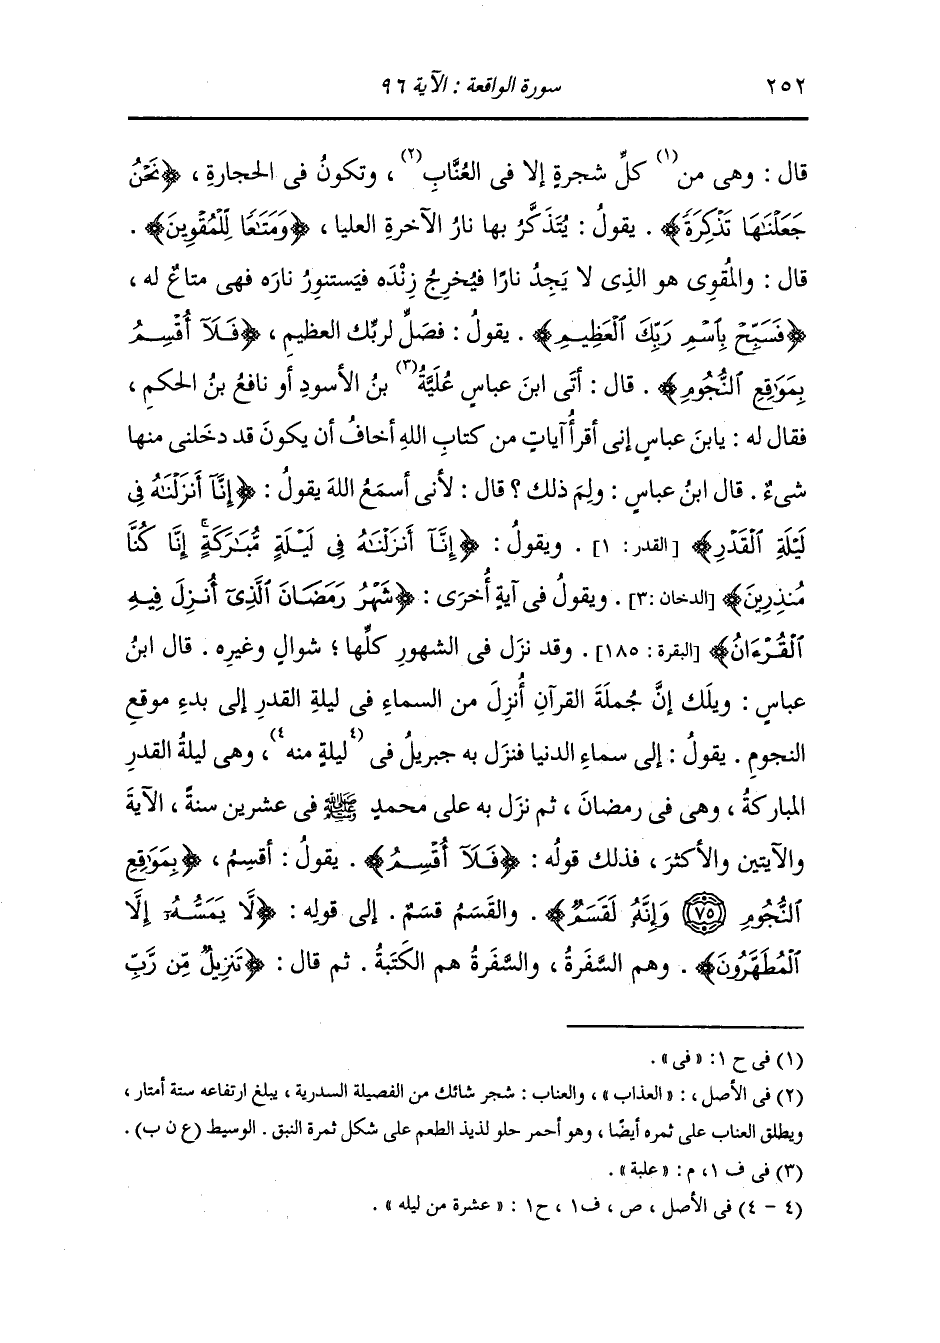 ٢٥٢ سورة الواقعة : الآية ٩٦
قال : وهى من(١) كلِّ شجرةٍ إلا فى العُنَّابِ(٢) ، وتكونُ فى الحجارةِ ، ﴿نَحْنُ
جَعَلْنَٰهَا تَذْكِرَةً﴾ . يقولُ : يُتَذَكَّرُ بها نارُ الآخرةِ العليا ، ﴿وَمَتَٰعًا لِّلْمُقْوِينَ﴾ .
قال : والمُقوِى هو الذِى لا يَجِدُ نارًا فيُخرِجُ زِنْدَه فيَستنورُ نارَه فهى متاعٌ له ،
﴿فَسَبِّحْ بِٱسْمِ رَبِّكَ ٱلْعَظِيمِ﴾ . يقولُ : فصَلِّ لربِّك العظيمِ ، ﴿فَلَآ أُقْسِمُ
بِمَوَٰقِعِ ٱلنُّجُومِ﴾ . قال : أتَى ابنَ عباسٍ عُلَيَّةُ(٣) بنُ الأسودِ أو نافعُ بنُ الحكمِ ،
فقال له : يابنَ عباسٍ إنى أقرأُ آياتٍ من كتابِ اللهِ أخافُ أن يكونَ قد دخَلنى منها
شىءٌ . قال ابنُ عباسٍ : ولِمَ ذلك ؟ قال : لأنى أسمَعُ اللهَ يقولُ : ﴿إِنَّآ أَنزَلْنَٰهُ فِى
لَيْلَةِ ٱلْقَدْرِ﴾ [القدر : ١] . ويقولُ : ﴿إِنَّآ أَنزَلْنَٰهُ فِى لَيْلَةٍ مُّبَٰرَكَةٍ ۚ إِنَّا كُنَّا
مُنذِرِينَ﴾ [الدخان :٣] . ويقولُ فى آيةٍ أُخرَى : ﴿شَهْرُ رَمَضَانَ ٱلَّذِىٓ أُنزِلَ فِيهِ
ٱلْقُرْءَانُ﴾ [البقرة : ١٨٥] . وقد نزَل فى الشهورِ كلِّها ؛ شوالٍ وغيرِه . قال ابنُ
عباسٍ : ويلَك إنَّ جُملَةَ القرآنِ أُنزِلَ من السماءِ فى ليلةِ القدرِ إلى بدءِ موقعِ
النجومِ . يقولُ : إلى سماءِ الدنيا فنزَل به جبريلُ فى (٤ليلةٍ منه٤) ، وهى ليلةُ القدرِ
المباركةُ ، وهى فى رمضانَ ، ثم نزَل به على محمدٍ ﷺ فى عشرين سنةً ، الآيةَ
والآيتين والأكثرَ ، فذلك قولُه : ﴿فَلَآ أُقْسِمُ﴾ . يقولُ : أقسِمُ ، ﴿بِمَوَٰقِعِ
ٱلنُّجُومِ (٧٥) وَإِنَّهُۥ لَقَسَمٌ﴾ . والقَسَمُ قسَمٌ . إلى قولِه : ﴿لَّا يَمَسُّهُۥٓ إِلَّا
ٱلْمُطَهَّرُونَ﴾ . وهم السَّفَرةُ ، والسَّفَرةُ هم الكَتَبةُ . ثم قال : ﴿تَنزِيلٌ مِّن رَّبِّ
(١) فى ح ١: « فى » .
(٢) فى الأصل ، : « العذاب » ، والعناب : شجر شائك من الفصيلة السدرية ، يبلغ ارتفاعه ستة أمتار ،
ويطلق العناب على ثمره أيضًا ، وهو أحمر حلو لذيذ الطعم على شكل ثمرة النبق . الوسيط (ع ن ب) .
(٣) فى ف ١، م : « علبة » .
(٤ - ٤) فى الأصل ، ص ، ف١ ، ح١ : « عشرة من ليله » .